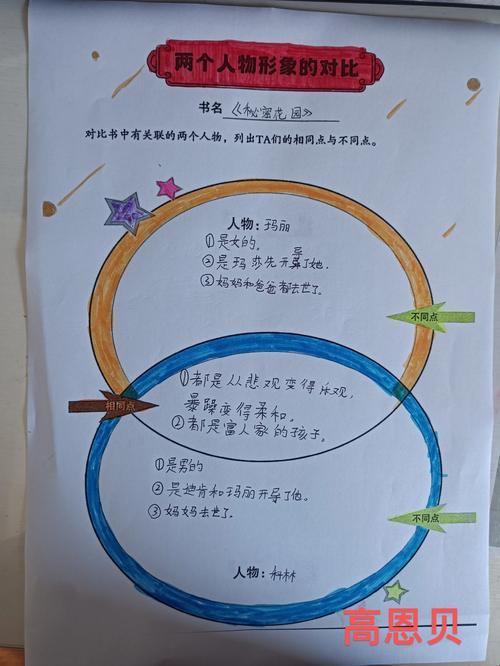 两个人物形象的对比
书名《秘密花园》
对比书中有关联的两个人物，列出TA们的相同点与不同点。
人物：玛丽
①是女的。
②是玛莎先开导了她.
③妈妈和爸爸都去世了。
不同点
①都是从悲观变得乐观，
暴躁变得柔和。
相同点
②都是富人家的孩子。
①是男的
②是迪肯和玛丽开导了他。
③妈妈去世了.
不同点
人物：科林
高恩贝